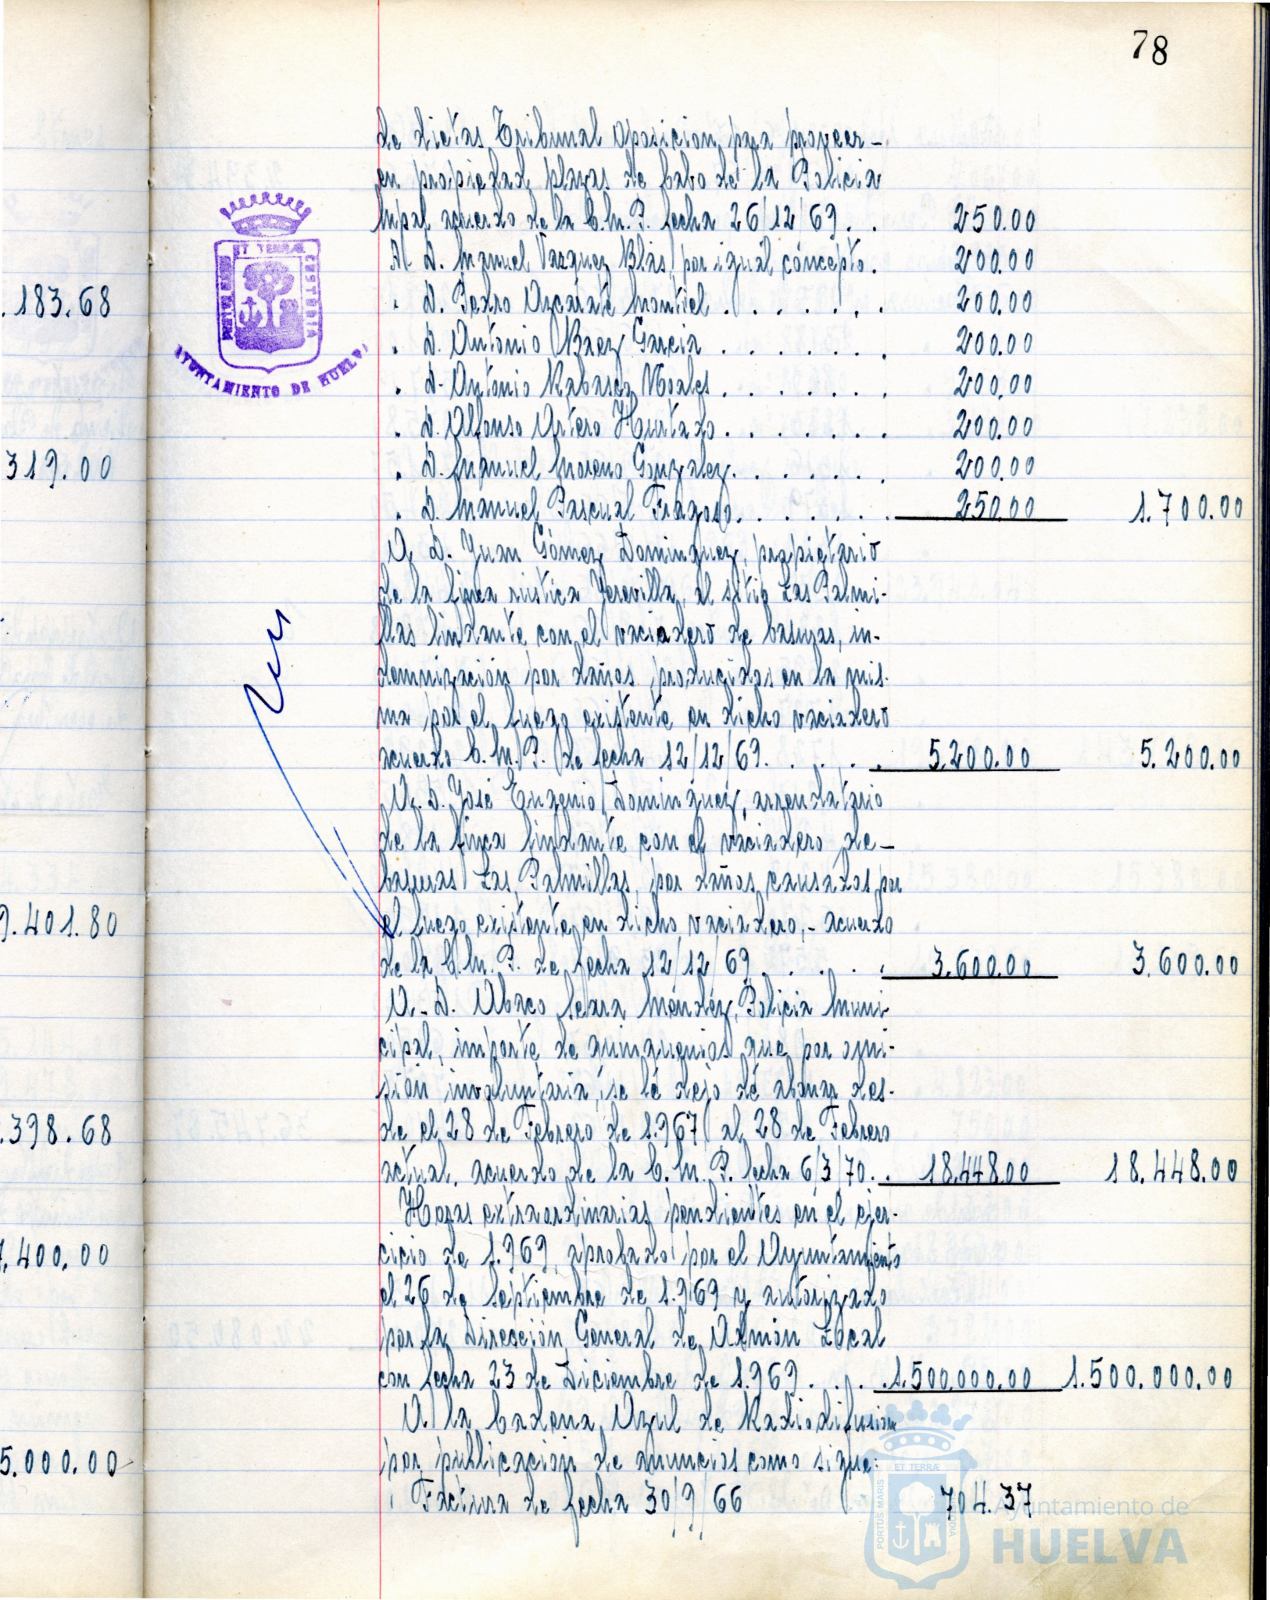 78
de dietas Tribunal oposicion para proveer-
en propiedad plazas de Cabo de la Policia
Mpal acuerdo de la C.M.P. fecha 26/12/69 . . 250.00
A D. Manuel Vazquez Blas, por igual concepto. 200.00
" D. Pedro Azcárate Montiel . . . . . . . 200.00
" D. Antonio Baez Garcia . . . . . . . 200.00
" D. Antonio Rabasco . . . . . . . 200.00
" D. Alfonso Artero Hurtado . . . . . . . 200.00
" D. Manuel Moreno Gonzalez . . . . . . . 200.00
" D. Manuel Pascual Fragoso . . . . . . 250.00 1.700.00
A D. Juan Gómez Dominguez, propietario
de la finca rústica Jerevilla, al sitio Las Palmi-
llas lindante con el vaciadero de basuras, in-
demnización por daños producidos en la mis-
ma por el fuego existente en dicho vaciadero
acuerdo C.M.P. de fecha 12/12/69. . . . . 5.200.00 5.200.00
A. D. José Eugenio Dominguez, arrendatario
de la finca lindante con el vaciadero de-
basuras Las Palmillas, por daños causados por
el fuego existente en dicho vaciadero,- acuerdo
de la C.M.P. de fecha 12/12/69 . . . . . 3.600.00 3.600.00
A.- D. Abaco Méndez, Policia Muni-
cipal, importe de quinquenios que por omi-
sión involuntaria, se le dejó de abonar des-
de el 28 de Febrero de 1.967 al 28 de Febrero
actual, acuerdo de la C.M.P. fecha 6/3/70 . . 18.448.00 18.448.00
Horas extraordinarias pendientes en el ejer-
cicio de 1.969, aprobado por el Ayuntamiento
el 26 de Septiembre de 1.969 y autorizado
por la Dirección General de Admón Local
con fecha 23 de Diciembre de 1.969 . . . . 1.500.000.00 1.500.000.00
A la Cadena Azul de Radiodifusion
por publicación de anuncios como sigue:
" Factura de fecha 30/9/66 704.37
.183.68
319.00
9.401.80
.398.68
.400.00
5.000.00
ET TERRÆ
CUSTODIA
PORTUS MARIS
AYUNTAMIENTO DE HUELVA
ET TERRÆ
PORTUS MARIS
Ayuntamiento de
HUELVA